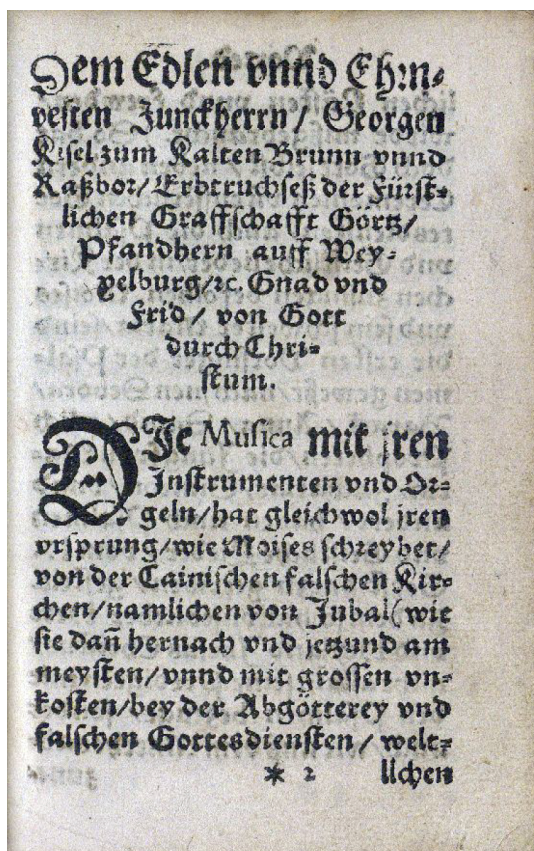 Dem Edlen vnnd Ehrn⸗
vesten Junckherrn / Georgen
Kisel zum Kalten Brunn vnnd
Raßbor / Erbtruchseß der Fürst⸗
lichen Graffschafft Görtz /
Pfandhern auff Wey⸗
pelburg / ꝛc. Gnad vnd
Frid / von Gott
durch Chri⸗
stum.
DJe Musica mit jren
Instrumenten vnd Or⸗
geln / hat gleichwol jren
vrsprung / wie Moises schreybet /
von der Cainischen falschen Kir⸗
chen / namlichen von Jubal ( wie
sie dañ hernach vnd jetzund am
meysten / vnnd mit grossen vn⸗
kosten / bey der Abgötterey vnd
falschen Gottesdiensten / welt⸗
* 2 lichen